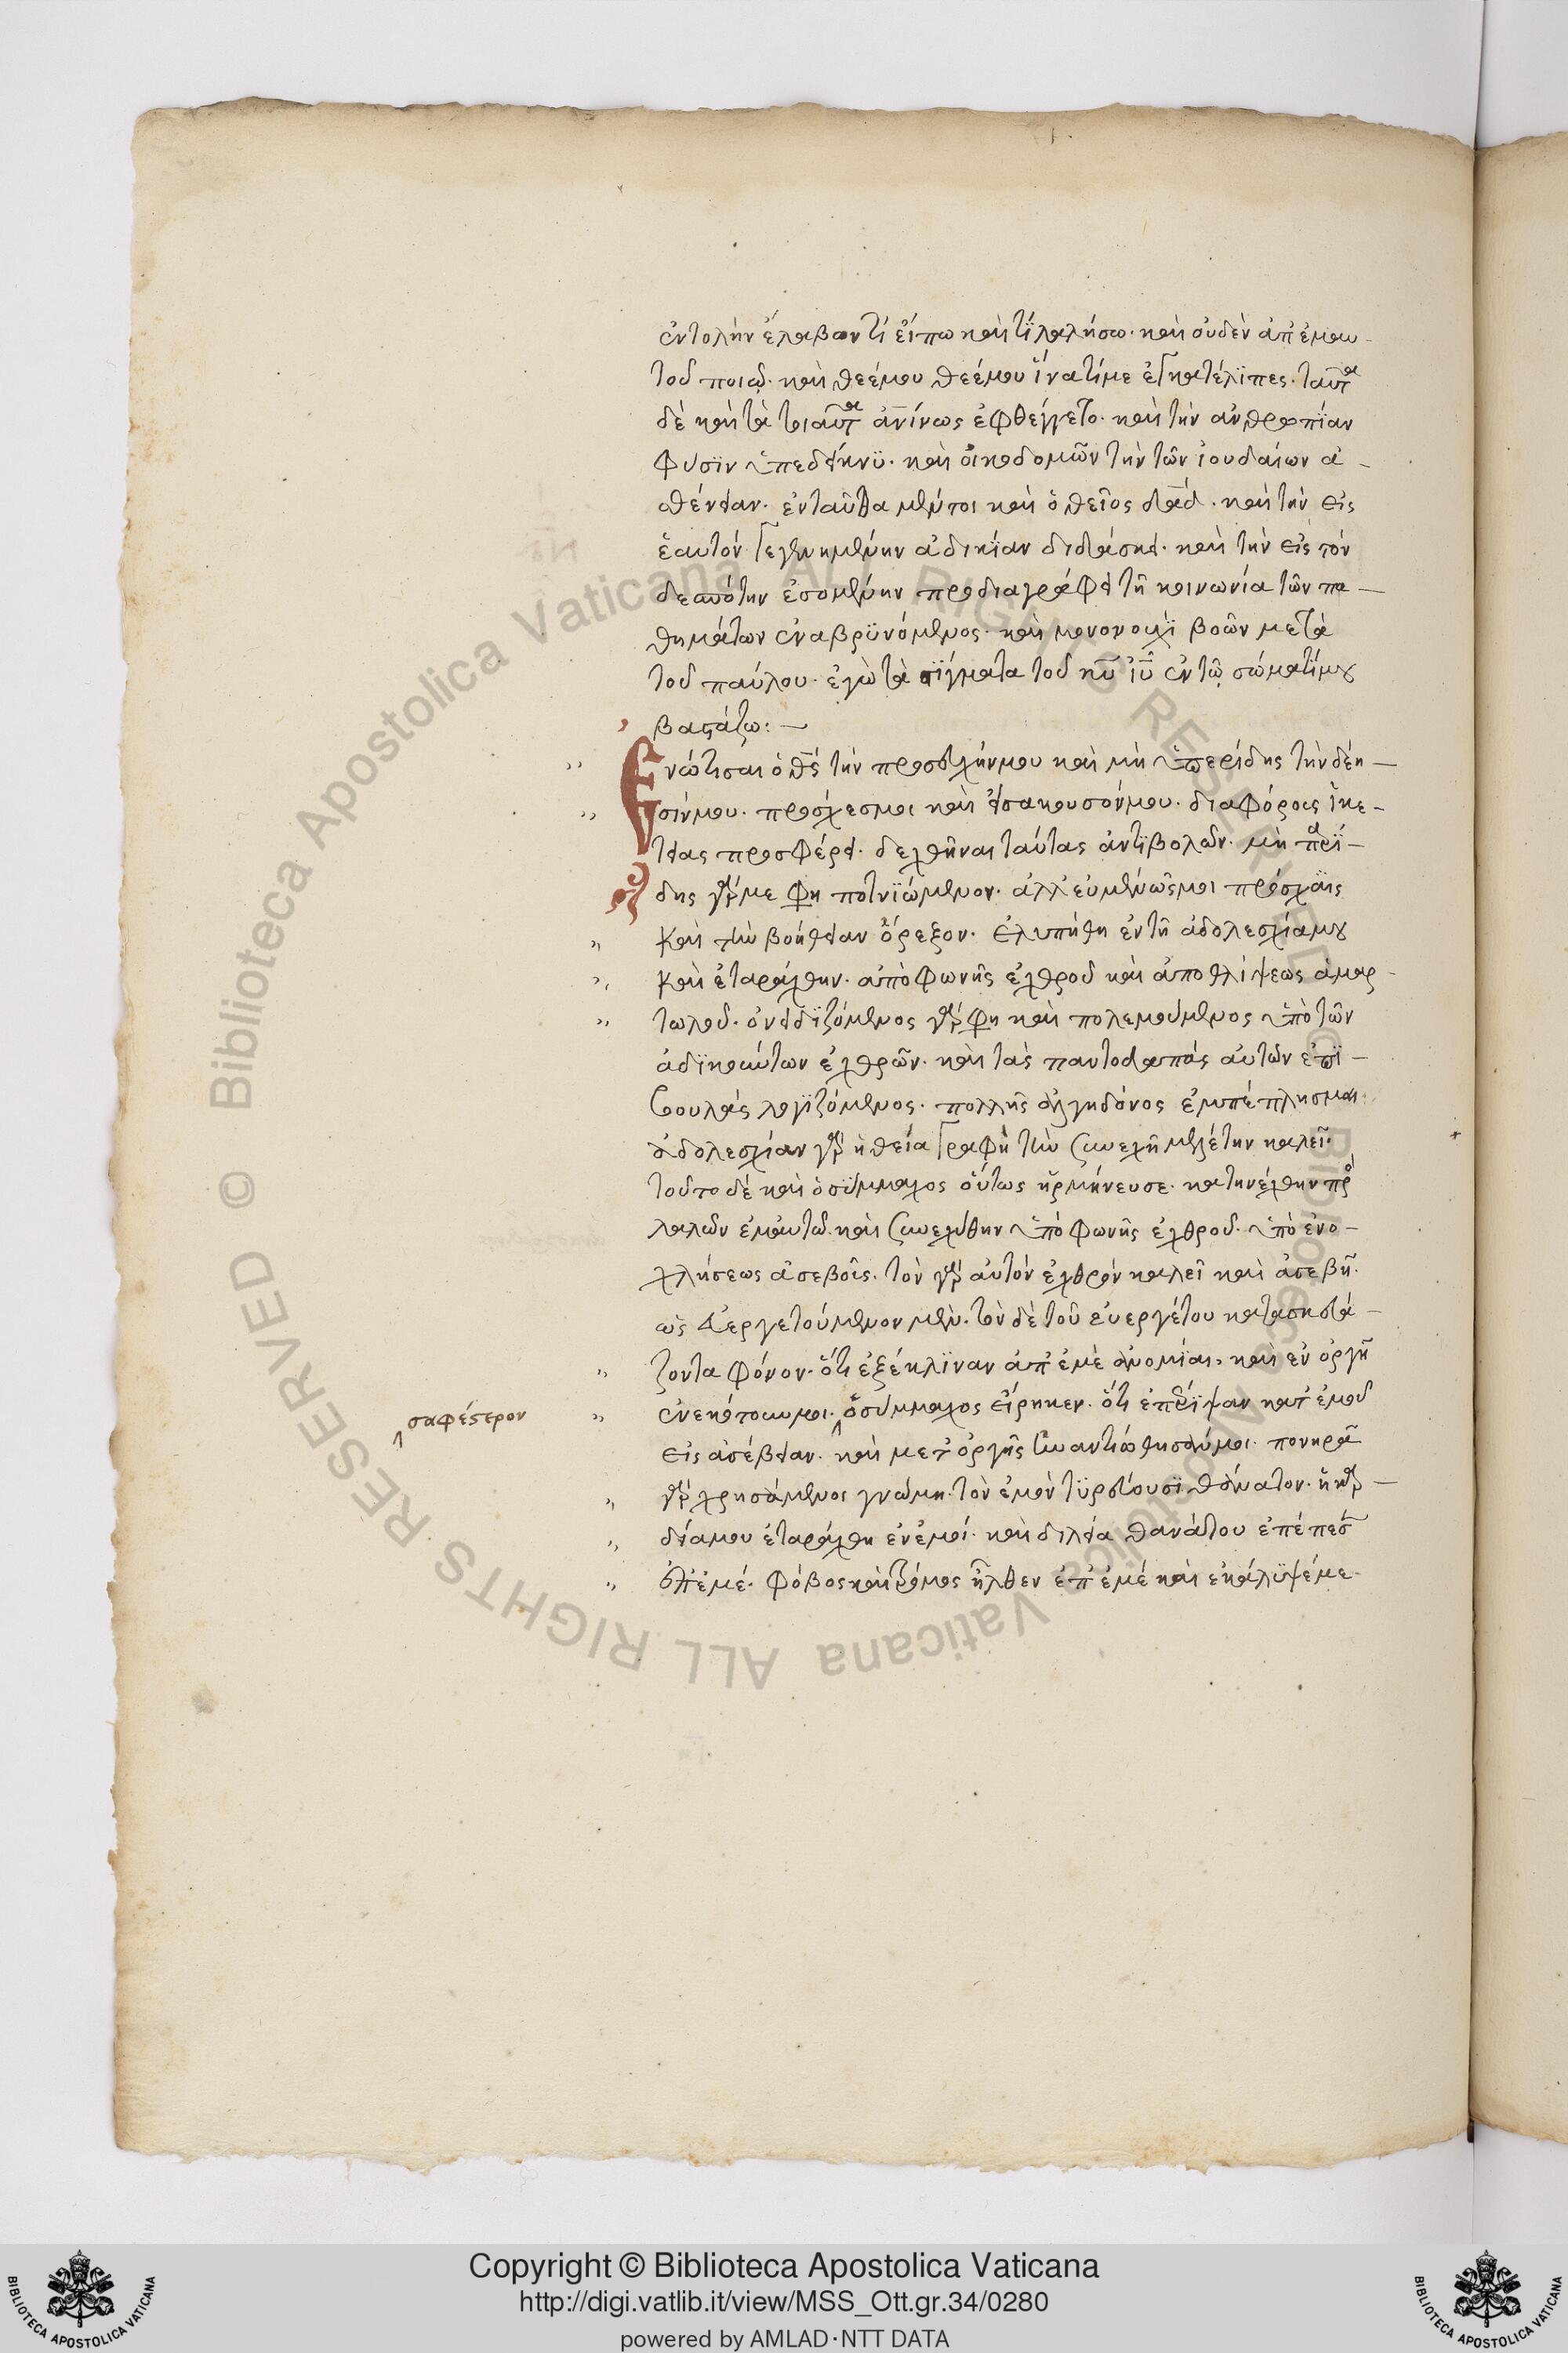 ἐντολὴν ἔλαβον τί εἴπω καὶ τί λαλήσω· καὶ οὐδὲν ἀπ' ἐμαυ
τοῦ ποιῶ· καὶ θεέμου θεέμου ἵνατίμε ἐγκατέλιπες· ταῦτα
δὲ καὶ τὰ τοιαῦτα ἀν̅ίνως ἐφθέγγετο· καὶ τὴν ἀνθρωπίαν
φύσϊν ὑπεδείκνϋ· καὶ οἰκοδομῶν τὴν τῶν ἰουδαίων ἀ
σθένειαν· ἐνταῦθα μέντοι καὶ ὁ θεῖος δα̅δ· καὶ τὴν εἰς
ἑαυτὸν γεγενημένην ἀδικίαν διδάσκει· καὶ τὴν εἰς τὸν
δεσπότην ἐσομένην προδιαγράφει τῆ κοινωνία τῶν πα
θημάτων ἐναβρϋνόμενος· καὶ μονονουχὶ βοῶν μετὰ
τοῦ παύλου· ἐγὼ τὰ στίγματα τοῦ κυ̅ ιυ̅ ἐν τῶ σώματίμου
βαστάζω:
Ἐνώτισαι ὁ θς̅ τὴν προσευχήνμου καὶ μὴ ὑπερίδης τὴν δέη
σίνμου· πρόσχεσμοι καὶ εἰσακουσόνμου· διαφόρους ἱκε
τείας προσφέρει· δεχθῆναι ταύτας ἀντιβολῶν· μὴ παρί
δης γάρ με φη ποτνιώμενον· ἀλλ' εὐμενῶςμοι πρόσχαις
καὶ τὴν βοήθειαν ὄρεξον· ἐλυπήθη ἐν τῆ ἀδολεσχίαμου
καὶ ἐταράχθην· ἀπὸ φωνῆς ἐχθροῦ καὶ ἀπο θλίψεως ἁμαρ
τωλοῦ· ὀνειδιζόμενος γάρ φη καὶ πολεμούμενος ὑπὸ τῶν
ἀδικούντων ἐχθρῶν· καὶ τὰς παντοδαπὰς αὐτῶν ἐπι
βουλὰς λογϊζόμενος· πολλῆς ἀλγηδόνος ἐμπέπλησμαι·
ἀδολεσχίαν γὰρ ἡ θεία γραφὴ τὴν συνεχῆ μελέτην καλεῖ·
τοῦτο δὲ καὶ ὁ σύμμαχος οὕτως ἡρμήνευσε· κατηνέχθην πρὸ
λαλῶν ἐμαυτῶ· καὶ συνεχύθην ὑπὸ φωνῆς ἐχθροῦ· ὑπὸ ἐνο
χλήσεως ἀσεβοῦς· τὸν γὰρ αὐτὸν ἐχθρὸν καλεῖ καὶ ἀσεβῆ·
ὡς εὐεργετούμενον μὲν· τὸν δὲ τοῦ εὐεργέτου κατασκευά
ζοντα φόνον· ὅτι ἐξέκλϊναν ἀπ' ἐμὲ ἀνομίαν· καὶ ἐν ὀργῆ
ἐνεκότουνμοι· ὁσύμμαχος εἴρηκεν· ὅτι ἐπέρριψαν κατ' ἐμοῦ
σαφέστερον
εἰς ἀσέβειαν· καὶ μετ' ὀργῆς ἠναντιώθησάνμοι· πονηρᾶ
γὰρ χρησάμενοι γνώμη· τὸν ἐμὸν τϋρεύουσϊ θάνατον· ἡ καρ
δίαμου ἐταράχθη ἐνἐμοί· καὶ δειλία θανάτου ἐπέπεσ
ἐπ' ἐμέ· φόβος καὶ τρόμος ἦλθεν ἐπ' ἐμὲ καὶ ἐκάλϋψέμε
Copyright © Biblioteca Apostolica Vaticana
http://digi.vatlib.it/view/MSS_Ott.gr.34/0280
powered by AMLAD·NTT DATA